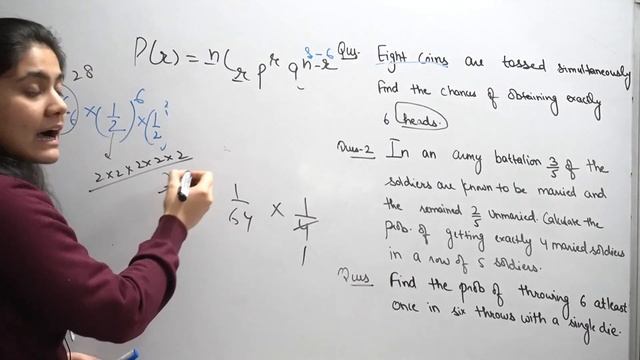 P(r) = nCr p^r q^n-r
8-6
28
6 × (1/2)^6 × (1/2
2×2×2×2×2×2
1/64 × 1/4
1
Ques. Eight Coins are tossed simultaneously
Find the chances of obtaining exactly
6 heads.
Ques-2 In an army battalion 3/5 of the
soldiers are known to be maried and
the remained 2/5 unmaried. Calculate the
prob. of getting exactly 4 maried soldiers
in a row of 5 soldiers.
Ques Find the prob of throwing 6 atleast
once in six throws with a single die.